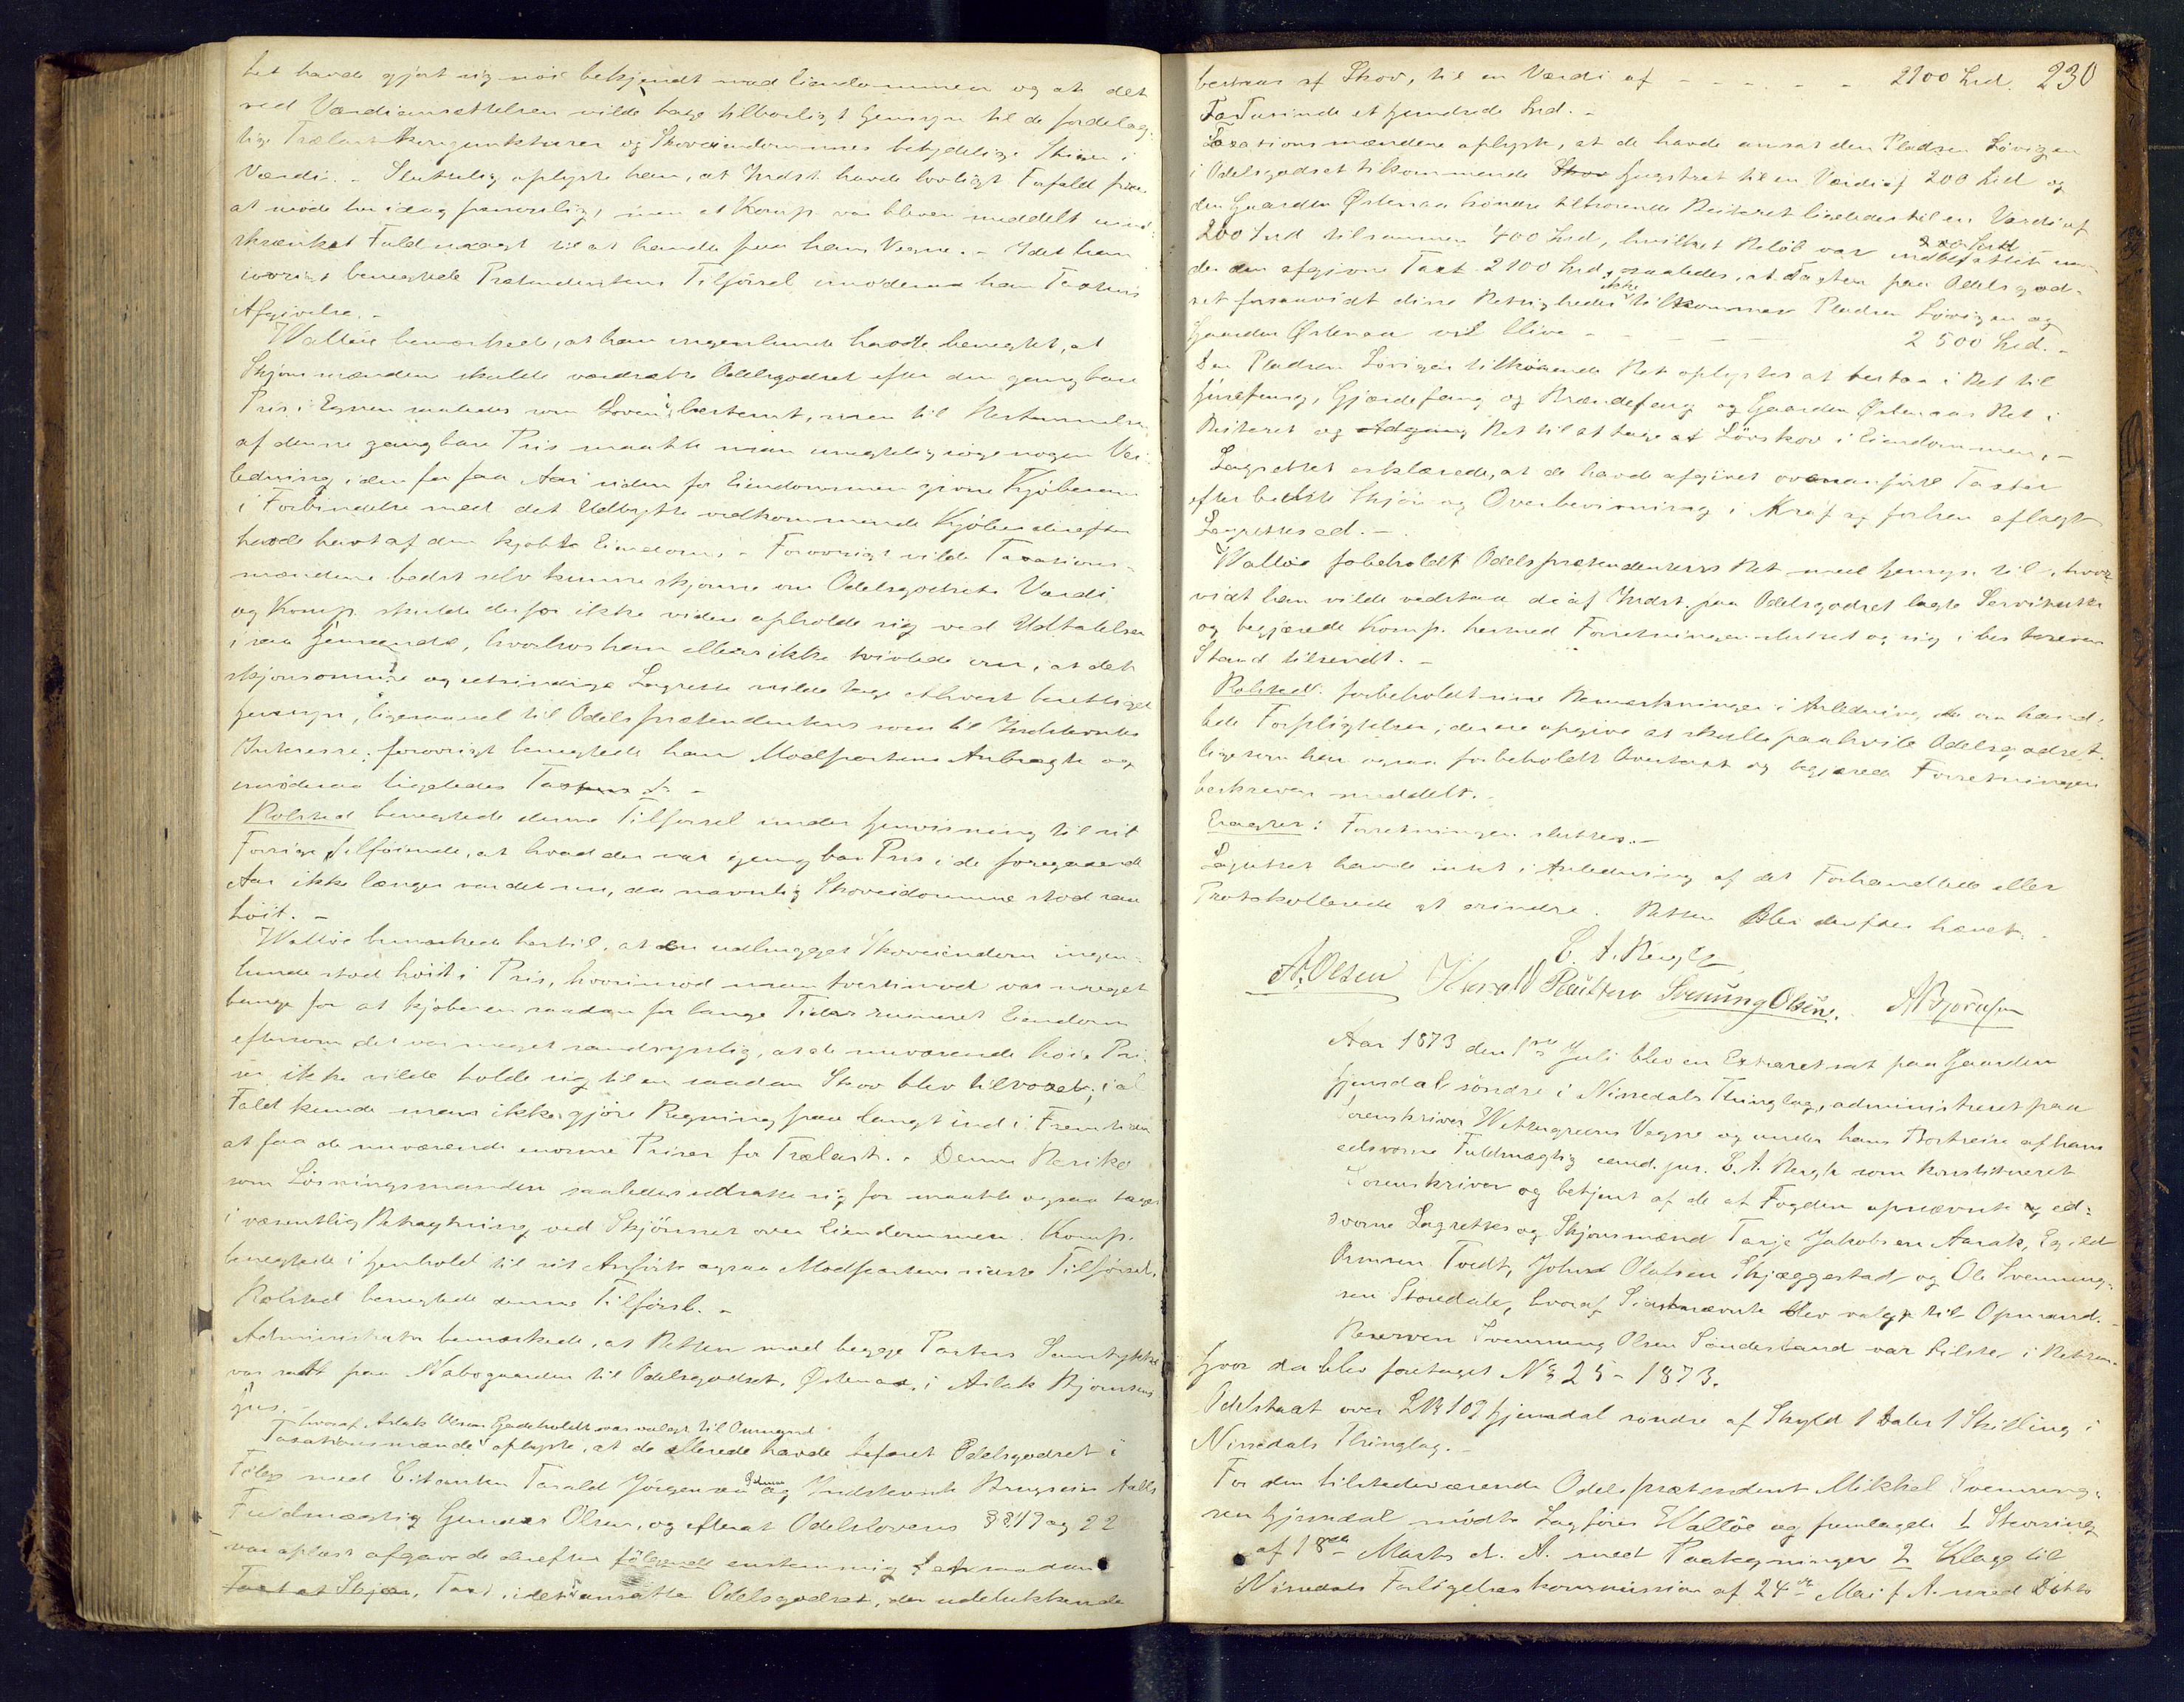 tet havde gjort sig nöie bekjendt med Eiendommen og at det
ved Værdiansættelsen vilde tage tilbørligt Hensyn til de fordelag-
tige Trælastkonjunkturer og Skoveiendommes betydelige Stigen i
Værdi. - Sluttelig oplyste han, at Indst. havde lovligt Forfald fra
at møde her idag personlig, men at Komp. var bleven meddelt uind-
skrænket Fuldmagt til at handle paa hans Vegne. - Idet han
iøvrigt benegtede Prætendentens Tilförsel imödesaa han Taxtens
Afgivelse. -
Walløe bemærkede, at han ingenlunde havde benegtet, at
Skjønsmændene skulde værdsætte Odelsgodset efter den gangbare
Pris i Egnen saaledes som Loven bestemt, men til Bestemmelsen
af denne gangbare Pris maatte man unegtelig söge nogen Vei-
ledning i den for faa Aar siden for Eiendommen givne Kjøbesum
i Forbindelse med det Udbytte vedkommende Kjøber derefter
havde havt af den kjøbte Eiendom. - Forøvrigt vilde Taxations-
mændene bedst selv kunne skjønne om Odelsgodsets Værdi
og Komp. skulde derfor ikke videre opholde sig ved Udtalelser
i saa Henseende, hvorhos han ellers ikke tvivlede om, at det
skjønsomme og retsindige Lagrette vilde tage ethvert berettiget
Hensyn, ligesaavel til Odelsprætendentens som til Indstevntes
Interesse; forøvrigt benegtede han Modpartens Anbragte og
imødesaa ligeledes Taxten
Rolsted benegtede denne Tilførsel under Henvisning til sit
Forrige, tilföiende, at hvad der var gangbar Pris i de foregaaende
Aar ikke længer var det nu, da navnlig Skoveidomme stod saa
höit. -
Walløe bemærkede hertil, at en udhugget Skoveiendom ingen-
lunde stod høit i Pris, hvorimod man tvertimod var meget
bange for at kjøbe en saadan for lange Tider ruineret Eiendom
eftersom det var meget sandsynlig, at de nuværende höie Pri-
ser ikke vilde holde sig til en saadan Skov blev tilvoxet; i al
Fald kunde man ikke gjöre Regning paa langt ind i Fremtiden
at faa de nuværende enorme Priser for Trælast. - Denne Risiko
som Løsningsmanden saaledes udsatte sig for maatte ogsaa tages
i væsentlig Betragtning ved Skjønnet over Eiendommen. Komp.
benegtede i Henhold til sit Anførte ogsaa Modpartens sidste Tilførsel.
Rolsted benegtede denne Tilførsel. -
Administrator bemærkede, at Retten med begge Parters Samtykke
var satt paa Nabogaarden til Odelsgodset, Østenaa, i Aslak Bjørnsens
Hus. -
hvoraf Aslak Olsen Gjedeholdt var valgt til Opmand
Taxationsmænde oplyste, at de allerede havde befaret Odelsgodset i
Følge med Citanten Tarald Jörgensen og Indstevnte Brugseier Aalls
Fuldmægtig Gunder Olsen, og efterat Odelslovens §§ 19 og 22
var oplæst afgave de derefter følgende enstemmig
Taxt at Skjøn, Taxt, idet ansatte Odelsgodset, der udelukkende
230
bestaar af Skov, til en Værdi af - - - - - 2100 Spd.
To Tusinde et Hundrede Spd. -
Taxationsmændene oplyste, at de havde ansat den Pladsen Løvigen
i Odelsgodset tilkommende Skov Hugstret til en Værdi af 200 Spd og
den Gaarden Østenaa søndre tilhørende Beiteret ligeledes til en Værdi af
200 Spd tilsammen 400 Spd, hvilket Beløb var indbefattet un-
der den afgivne Taxt 2100 Spd, saaledes, at Taxten paa Odelsgod-
set forsaavidt disse Rettigheder ikke tilkommer Pladsen Løvigen og
Gaarden Østenaa vil blive - - - - 2500 Spd. -
Den Pladsen Løvigen tilhørende Ret oplystes at bestaa i Ret til
Husefang, Gjærdefang og Brændefang og Gaarden Østenaas Ret i
Beiteret og Adgang Ret til at tage af Løvskov i Eiendommen. -
Lagrettet erklærede, at de havde afgivet ovenanførte Taxter
efter bedste Skjøn og Overbevisning i Kraf af forhen aflagt
Lagrettesed. -
Walløe forbeholdt Odelsprætendentens Ret med Hensyn til, hvor-
vidt han vilde vedstaa de af Indst. paa Odelsgodset lagte Servitutter
og begjærede Komp. hermed Forretningen sluttet og sig i beskreven
Stand tilsendt. -
Rolsted forbeholdt sine Bemærkninger i Anledning de om hand-
lede Forpligtelser, der ere opgivne at skulle paahvile Odelsgodset,
ligesom han ogsaa forbeholdt Overtaxt og begjærede Forretningen
beskreven meddelt. -
Eragtes: Forretningen sluttes. -
Lagrettet havde intet i Anledning af det Forhandlede eller
Protokollerede at erindre. Retten blev derefter hævet. -
C. A. Bergh
A. Olsen Harald Paulsen Svenung Olsen. A Bjørnsen
Aar 1873 den 1ste Juli blev en Extraret sat paa Gaarden
Hjemdal söndre i Nissedals Thinglag, administreret paa
Sorenskriver Wettergreens Vegne og under hans Bortreise af hans
edsvorne Fuldmægtig cand. jur. C. A. Bergh som konstitueret
Sorenskriver og betjent af de af Fogden opnævnte og ed-
svorne Lagrettes og Skjønsmænd Tarje Jakobsen Aarak, Egild
Ormsen Tvedt, John Olufsen Skjæggestad og Ole Svennung-
sen Storedale, hvoraf Sidstnævnte blev valgt til Opmand. -
Reserven Svennung Olsen Sønderland var tilstede i Retten. -
Hvor da blev foretaget No 25 - 1873.
Odelstaxt over LN 109 Hjemdal söndre af Skyld 1 Daler 1 Skilling i
Nissedals Thinglag. -
For den tilstedeværende Odelsprætendent Mikkel Svennung-
sen Hjemdal mødte Sagfører Walløe og fremlagde 1 Stevning
af 18de Marts d. A. med Paategninger 2 Klage til
Nissedals Forligelseskommission af 24de Mai f. A. med Ditto